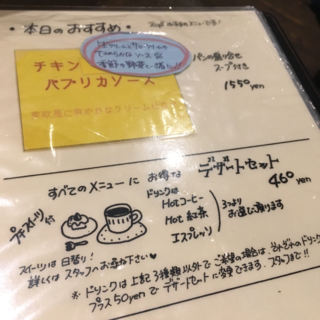 ・本日のおすすめ・
チキン
パプリカソース
季節の野菜と一緒に!
パンの盛り合せ
スープ付き
1550yen
すべてのメニューに
プチスイーツ付
お得な デザートセット
460yen
ドリンクは
Hotコーヒー
Hot 紅茶
エスプレッソ
3つより
お選び頂けます
スイーツは日替り!
詳しくはスタッフへお尋ね下さい♡
※ ドリンクは上記3種類以外でご希望の場合は、それぞれのドリンク
プラス50yenでデザートセットに変更できます。スタッフまで!!